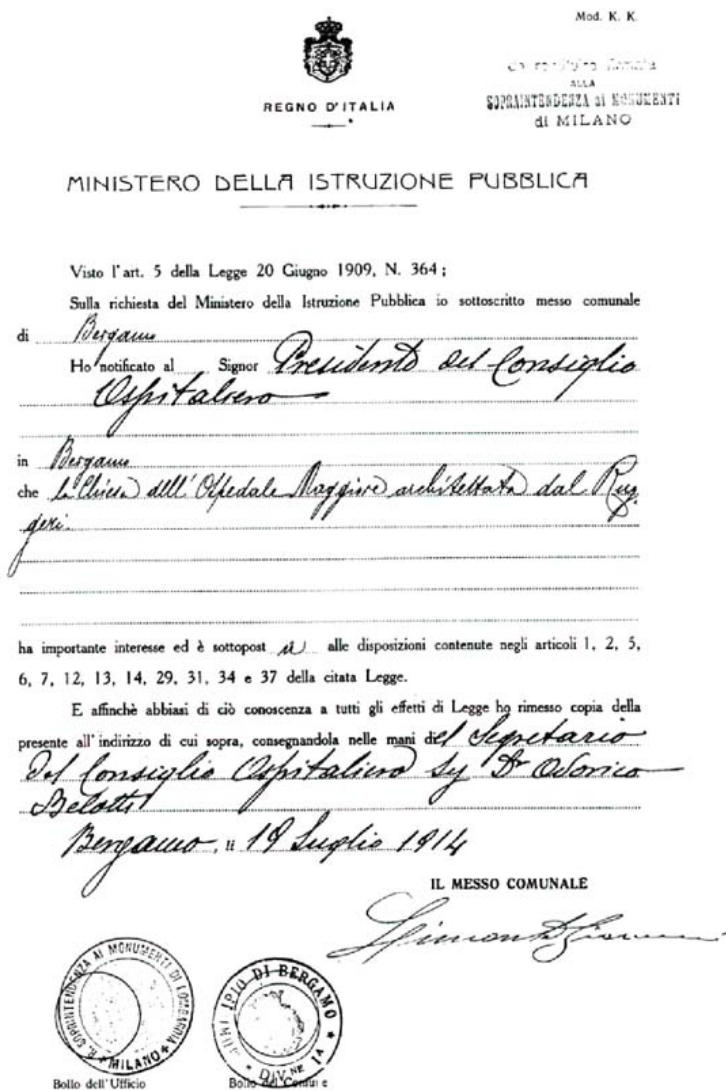 Mod. K. K.
ALLA
SOPRAINTENDENZA ai MONUMENTI
di MILANO
REGNO D'ITALIA
MINISTERO DELLA ISTRUZIONE PUBBLICA
Visto l'art. 5 della Legge 20 Giugno 1909, N. 364;
Sulla richiesta del Ministero della Istruzione Pubblica io sottoscritto messo comunale
di Bergamo
Ho notificato al Signor Presidente del Consiglio
Ospitaliero
in Bergamo
che la Chiesa dell'Ospedale Maggiore architettata dal Rug
geri.
ha importante interesse ed è sottopost a alle disposizioni contenute negli articoli 1, 2, 5,
6, 7, 12, 13, 14, 29, 31, 34 e 37 della citata Legge.
E affinchè abbiasi di ciò conoscenza a tutti gli effetti di Legge ho rimesso copia della
presente all'indirizzo di cui sopra, consegnandola nelle mani del Segretario
del Consiglio Ospitaliero Sig Dr Odorico
Belotti
Bergamo, li 19 Luglio 1914
IL MESSO COMUNALE
R. SOPRINTENDENZA AI MONUMENTI DI LOMBARDIA
MILANO
MUNICIPIO DI BERGAMO
DIV.NE IV
Bollo dell'Ufficio
Bollo del Comune